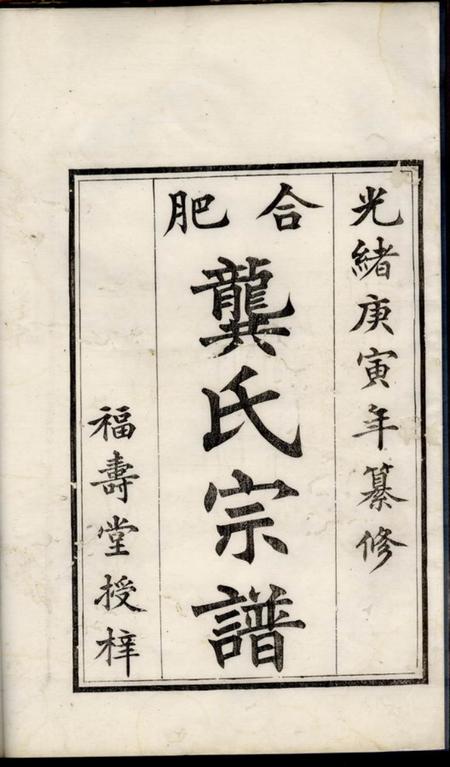 光緒庚寅年纂修
合肥
龔氏宗譜
福壽堂授梓